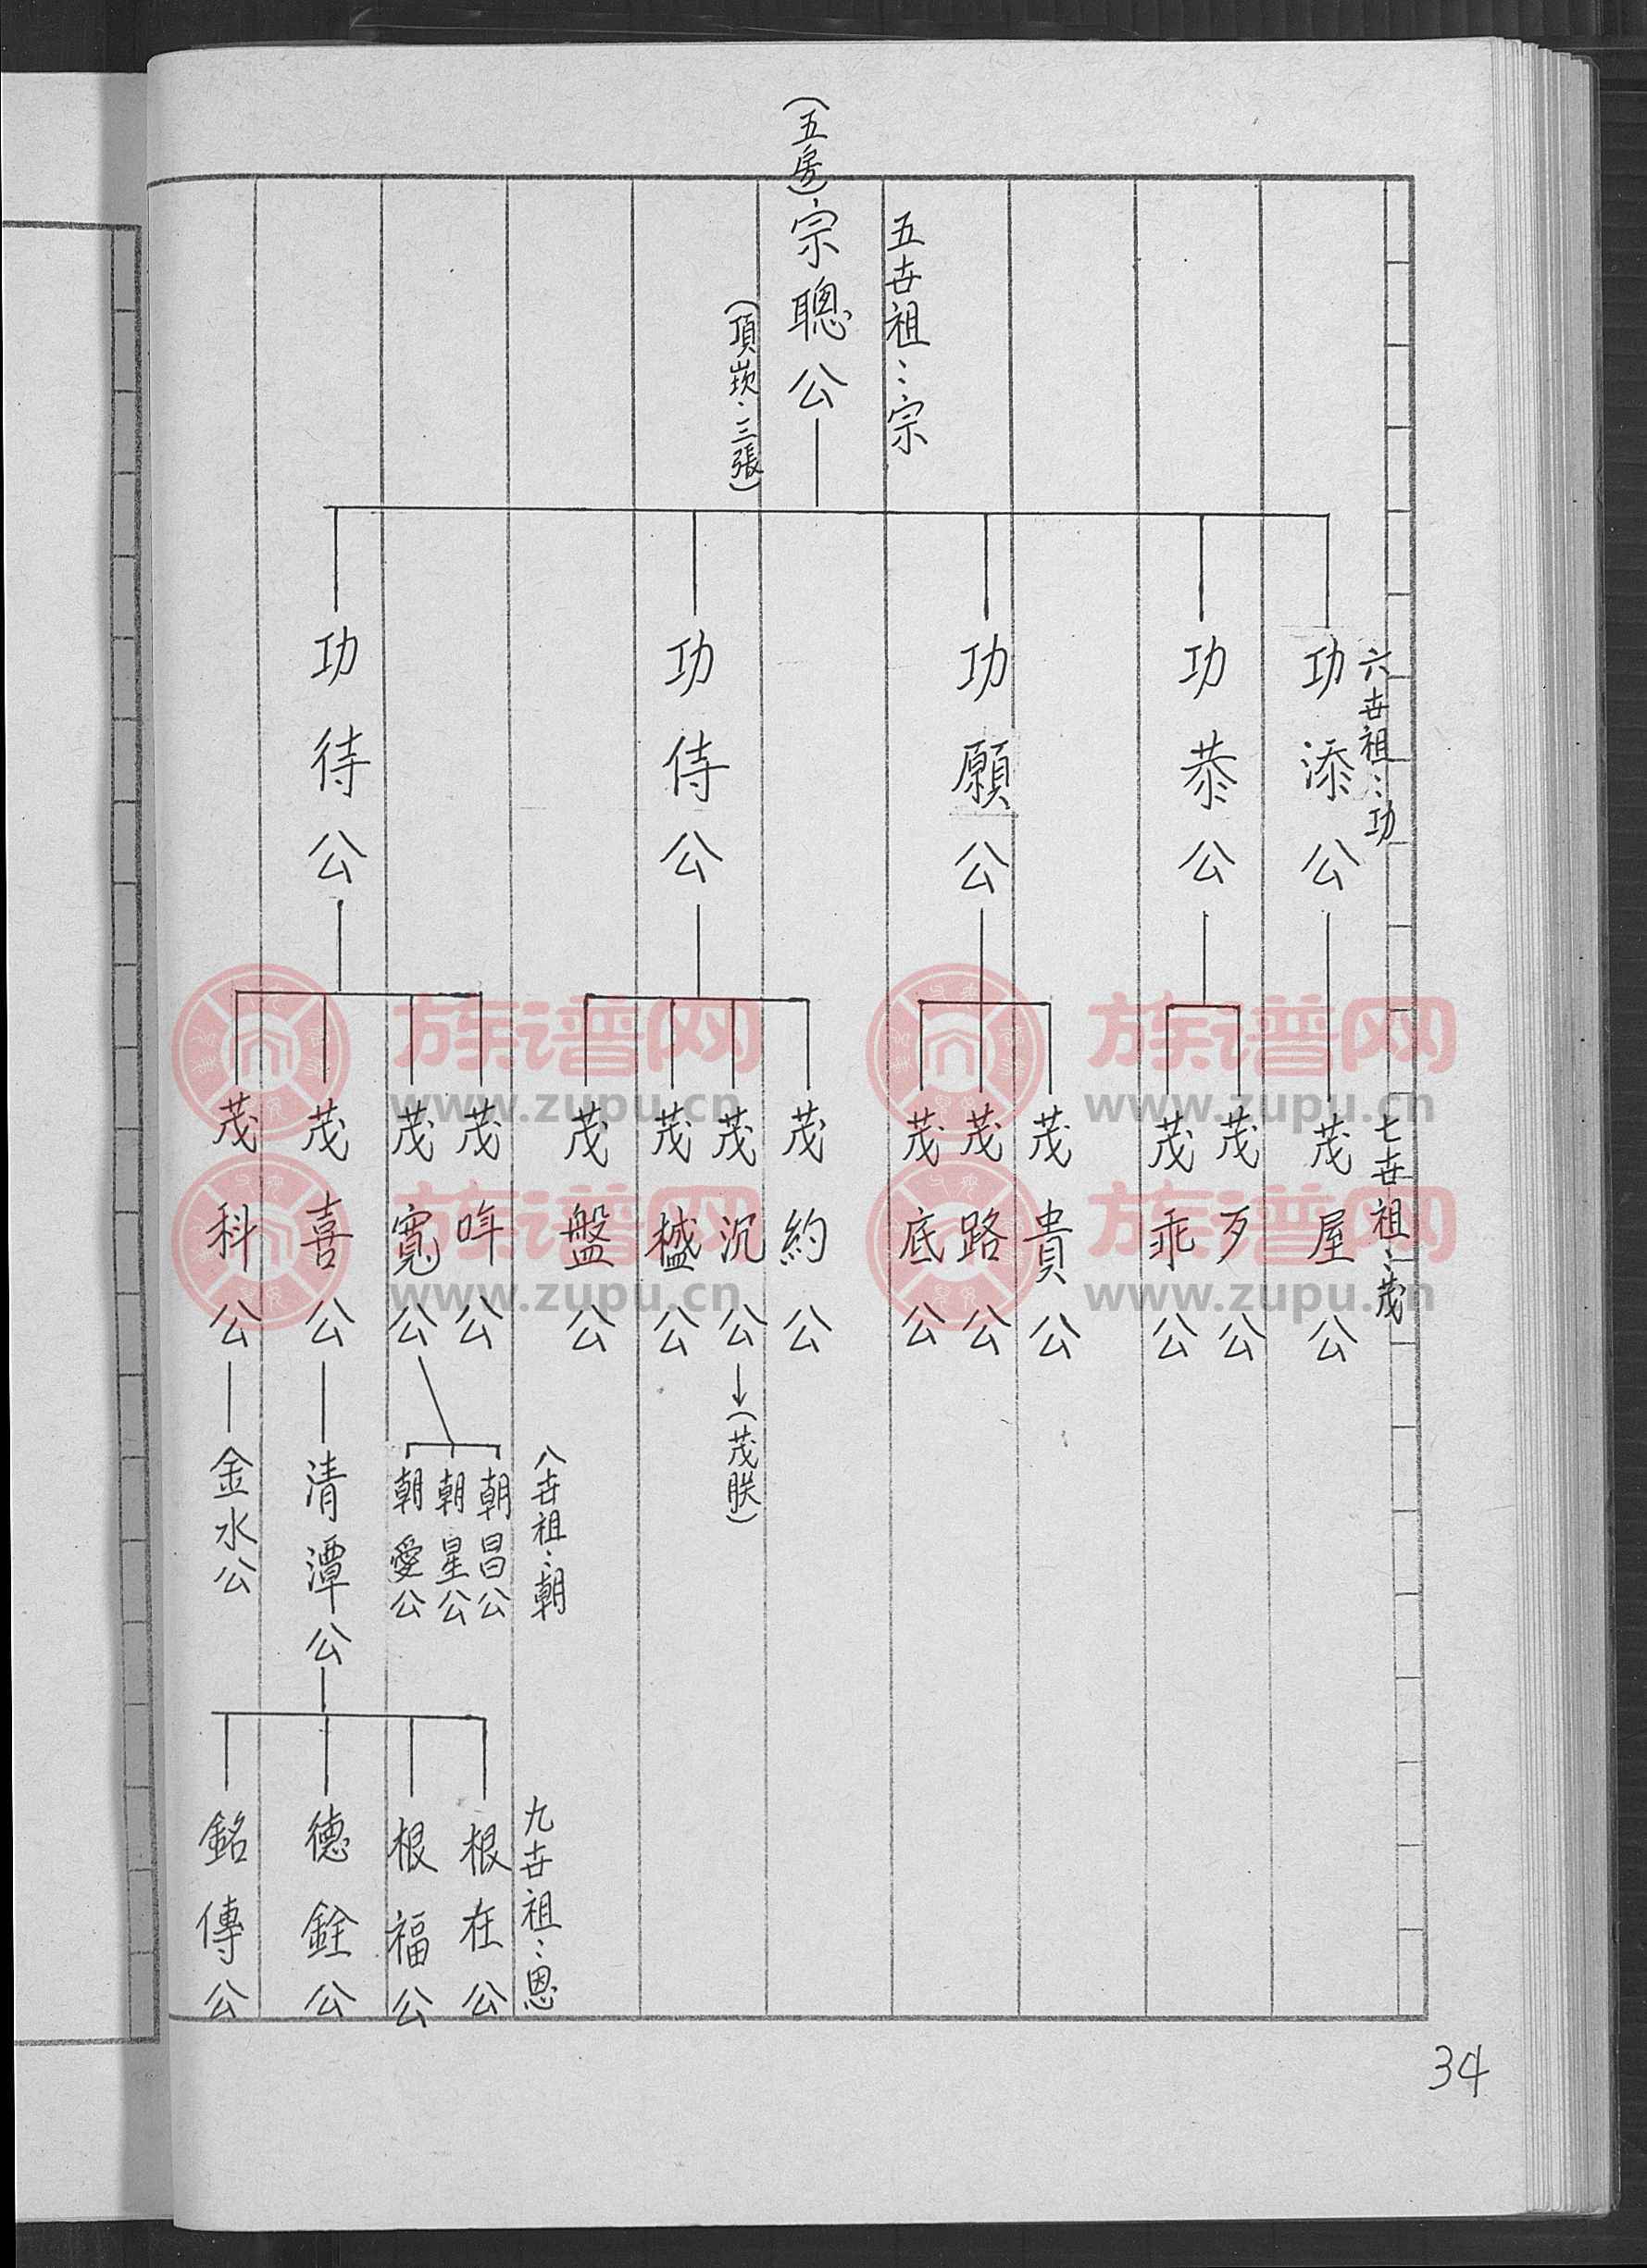 五世祖：宗
(五房)宗聰公
(頂崁：三張)
六世祖：功
功添公
功恭公
功願公
功侍公
功待公
七世祖：茂
茂屋公
茂歹公
茂乖公
茂貴公
茂路公
茂底公
茂約公
茂沉公→(茂朕)
茂公
茂盤公
茂哖公
茂寬公
茂喜公
茂科公
八世祖：朝
朝昌公
朝星公
朝愛公
清潭公
金水公
九世祖：恩
根在公
根福公
德銓公
銘傳公
34
族谱网
www.zupu.cn
族谱网
www.zupu.cn
族谱网
www.zupu.cn
族谱网
www.zupu.cn